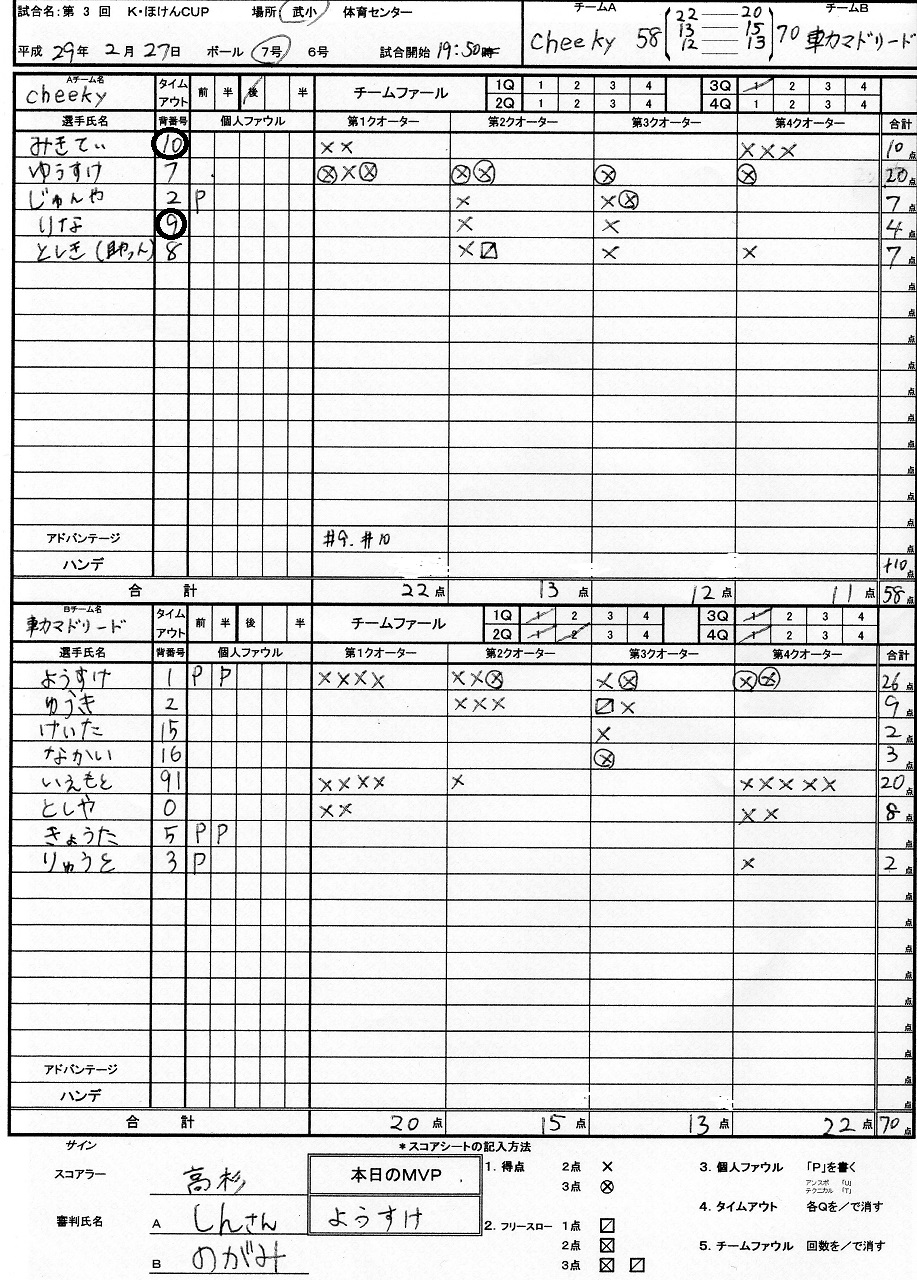 試合名:第 3 回 K・ほけんCUP 場所: 武小 体育センター
平成 29年 2月 27日 ボール 7号 6号 試合開始 19:50時
チームA チームB
cheeky 58 22 20 70 車力マドリード
13 15
12 13
Aチーム名 cheeky タイムアウト 前 半 後 半 チームファール 1Q 1 2 3 4 3Q 1 2 3 4
2Q 1 2 3 4 4Q 1 2 3 4
選手氏名 背番号 個人ファウル 第1クオーター 第2クオーター 第3クオーター 第4クオーター 合計
みきてぃ 10 ×× ××× 10点
ゆうすけ 7 ⊗×⊗ ⊗⊗ ⊗ ⊗ 20点
じゅんや 2 P × ×⊗ 7点
りな 9 × × 4点
としき(助っ人) 8 ×〼 × × 7点
点
点
点
点
点
点
点
点
点
点
アドバンテージ #9. #10 点
ハンデ +10点
合 計 22点 13点 12点 11点 58点
Bチーム名 車力マドリード タイムアウト 前 半 後 半 チームファール 1Q 1 2 3 4 3Q 1 2 3 4
2Q 1 2 3 4 4Q 1 2 3 4
選手氏名 背番号 個人ファウル 第1クオーター 第2クオーター 第3クオーター 第4クオーター 合計
ようすけ 1 P P ×××× ××⊗ ×⊗ ⊗⊗ 26点
ゆうき 2 ××× 〼× 9点
けいた 15 × 2点
なかい 16 ⊗ 3点
いえもと 91 ×××× × ××××× 20点
としや 0 ×× ×× 8点
きょうた 5 P P 点
りゅうと 3 P × 2点
点
点
点
点
点
点
点
アドバンテージ 点
ハンデ 点
合 計 20点 15点 13点 22点 70点
サイン
スコアラー 高杉
審判氏名 A しんさん
B のがみ
本日のMVP
ようすけ
*スコアシートの記入方法
1. 得点 2点 ×
3点 ⊗
2. フリースロー 1点 〼
2点 ⊠
3点 ⊠ 〼
3. 個人ファウル 「P」を書く
アンスポ 「U」
テクニカル 「T」
4. タイムアウト 各Qを/で消す
5. チームファウル 回数を/で消す